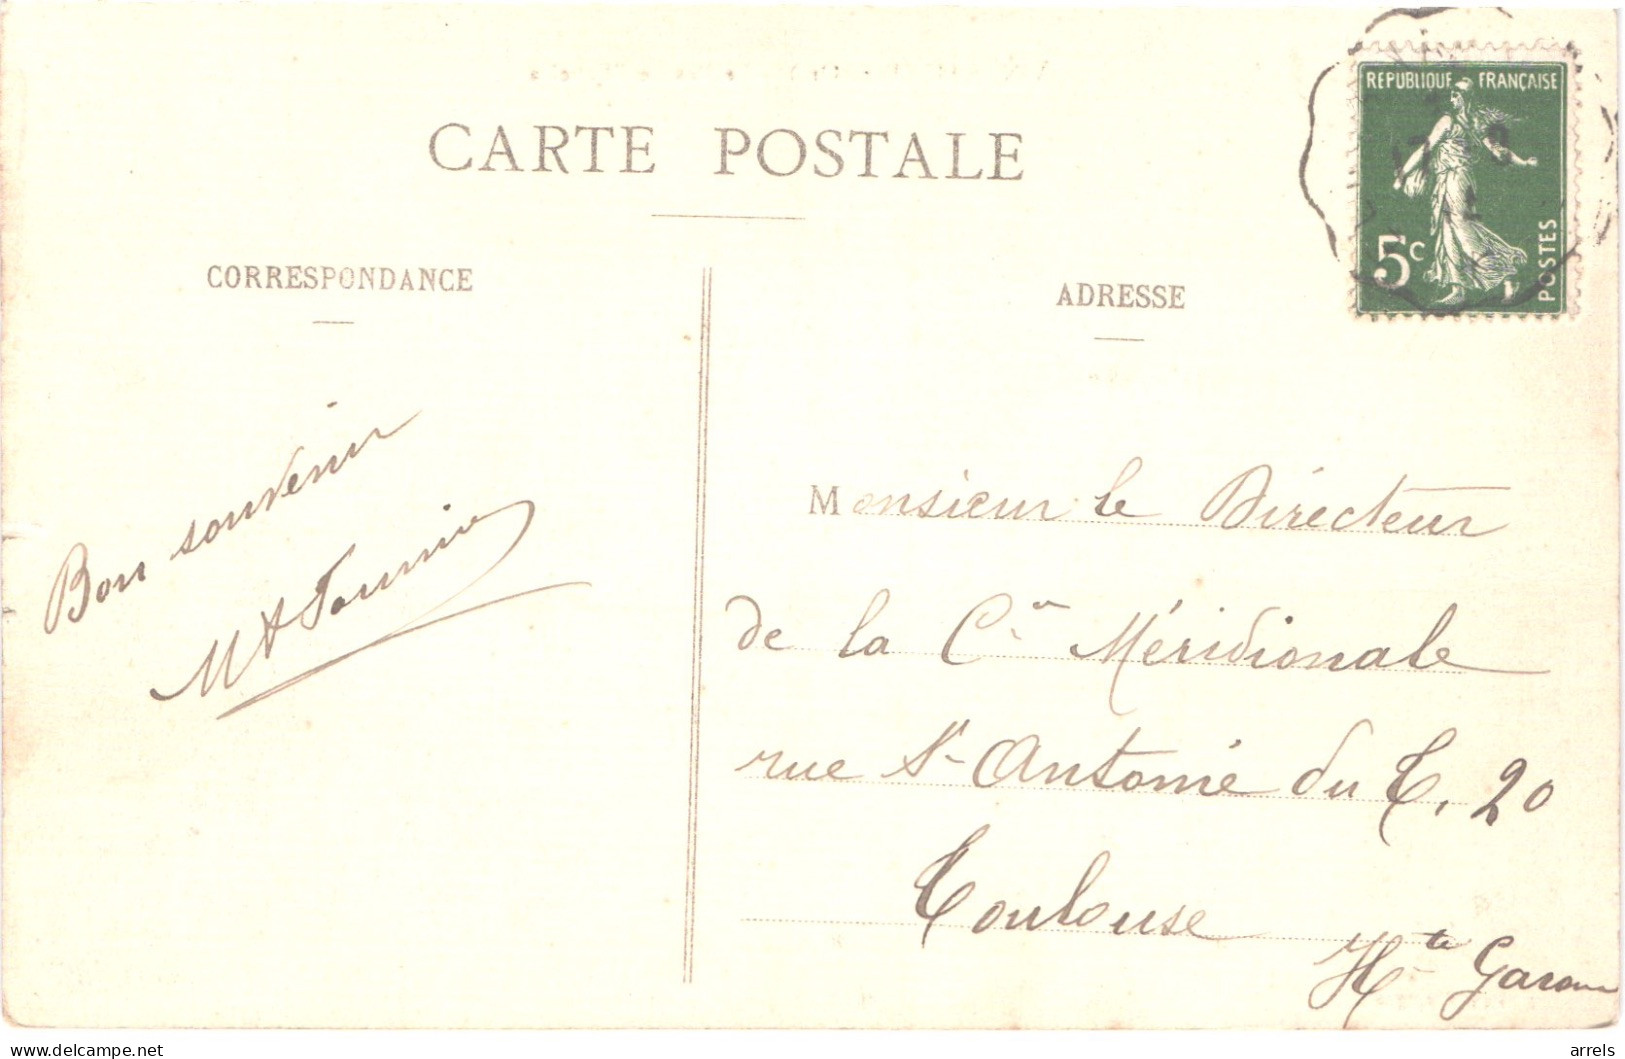 CARTE POSTALE
CORRESPONDANCE
ADRESSE
REPUBLIQUE FRANÇAISE
5c
POSTES
Bon souvenir
Monsieur le Directeur
de la Cie Méridionale
rue St Antoine du T. 20
Toulouse
Hte Garonne
delcampe.net
arrels